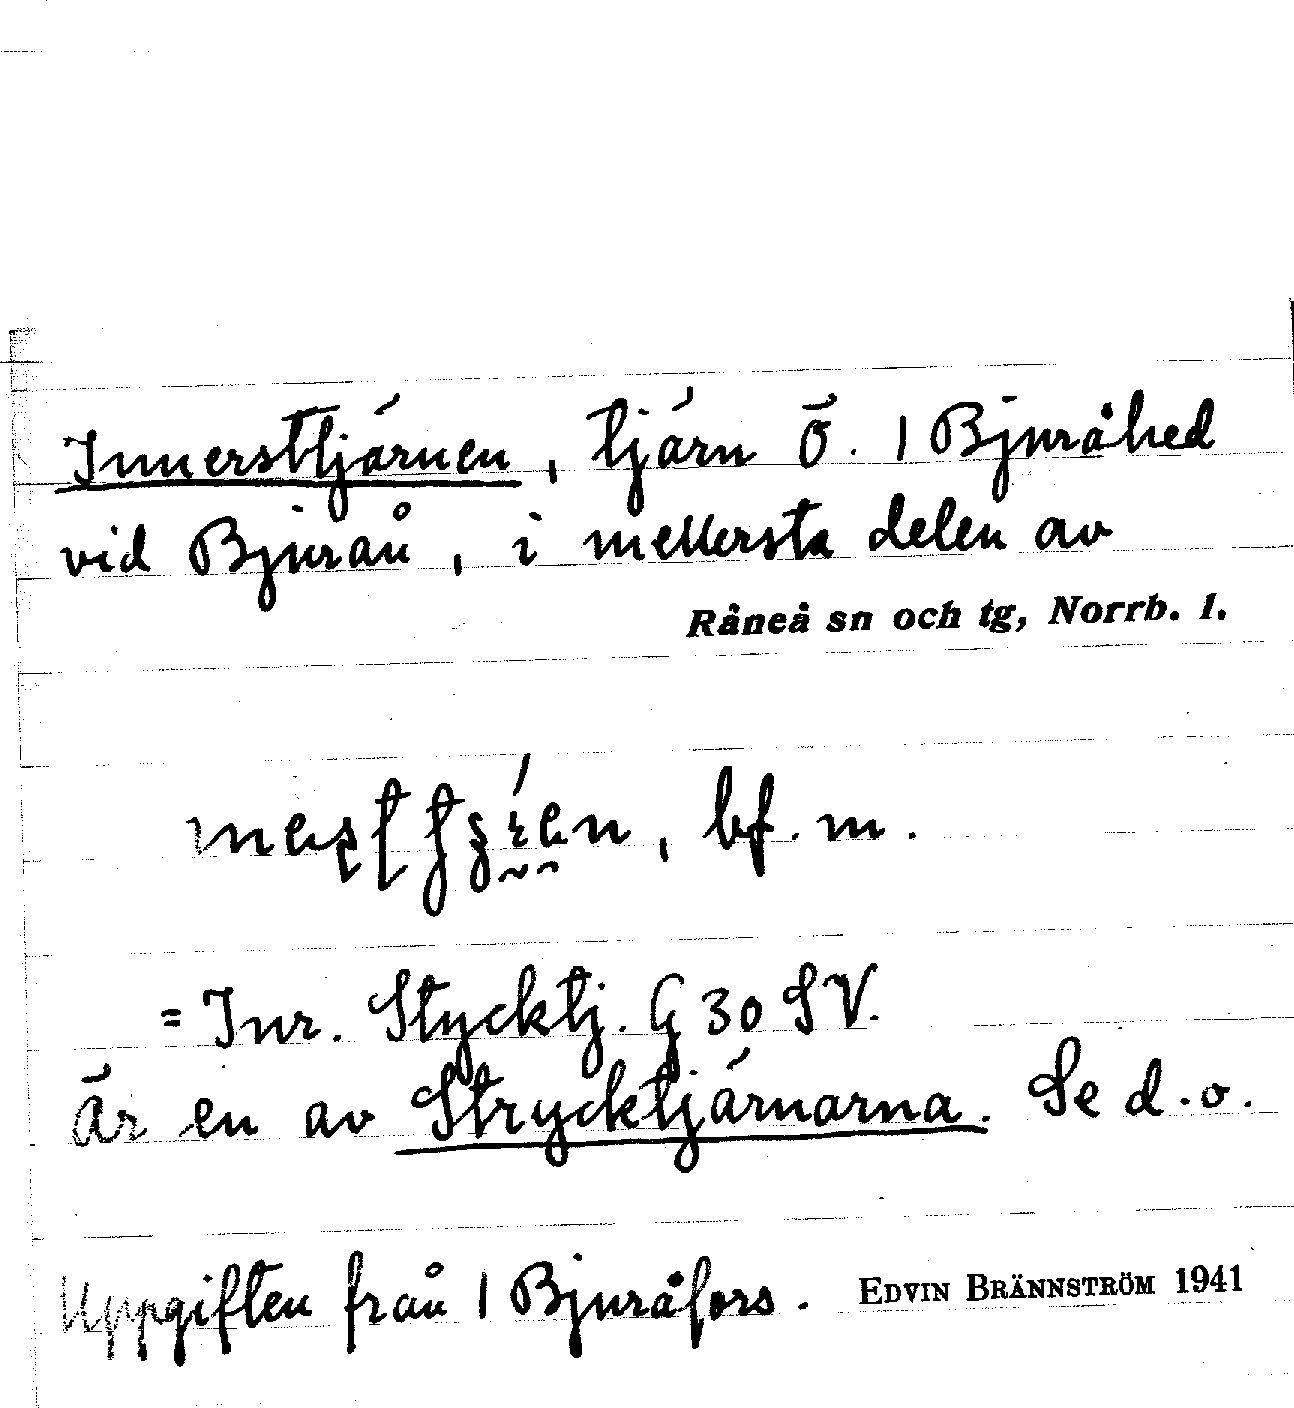 Innersttjärnen, tjärn Ö. 1 Bjuråhed
vid Bjurån, i mellersta delen av
Råneå sn och tg, Norrb. l.
bf. m.
= Inr. Stycktj. G 30 SV.
Är en av Strycktjärnarna. Se d.o.
Uppgiften från 1 Bjuråfors. EDVIN BRÄNNSTRÖM 1941